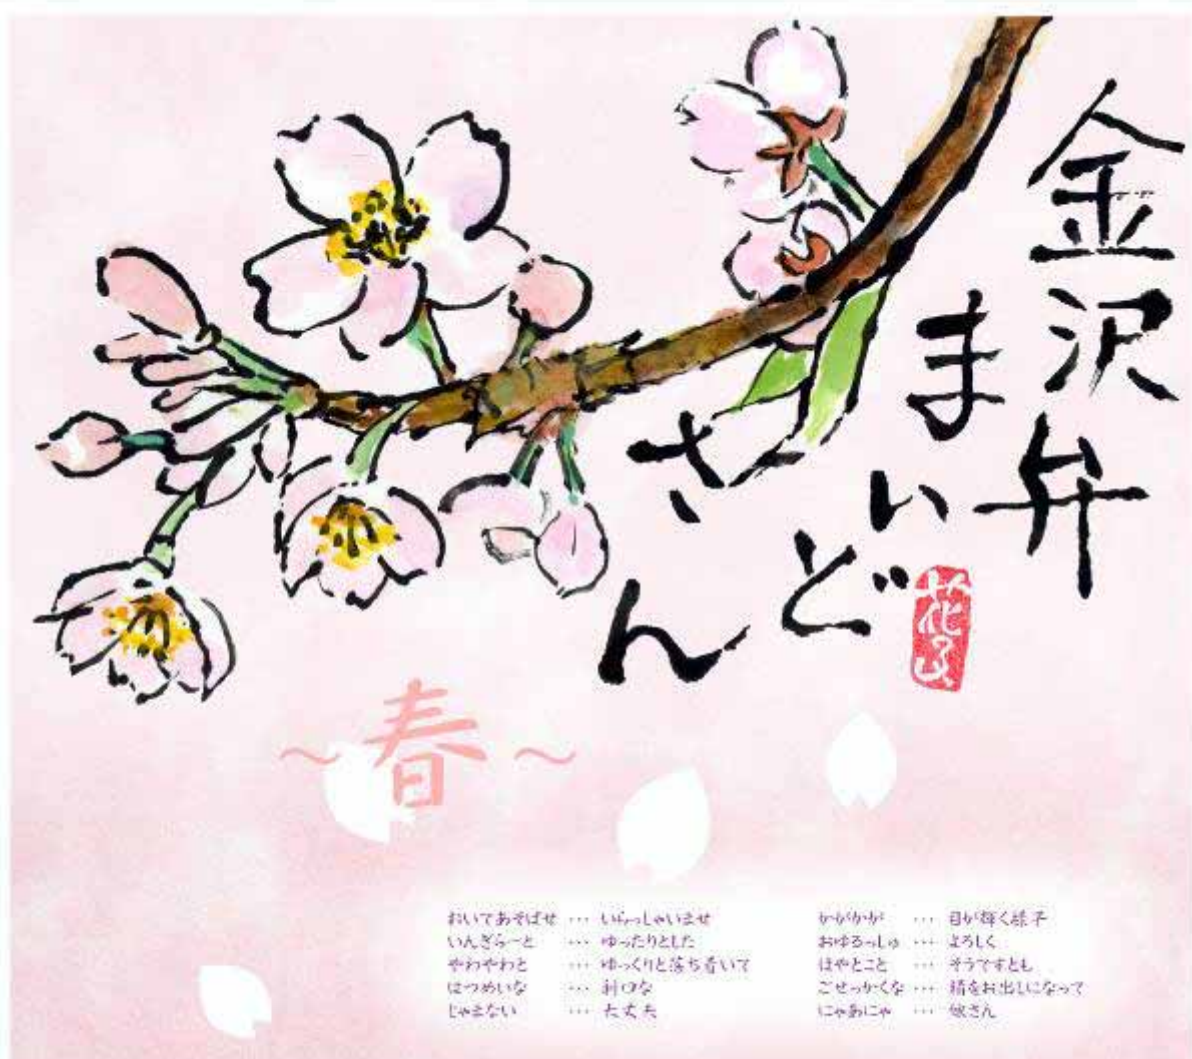 金沢弁
まいどさん
花るん
～春～
おいであそばせ … いらっしゃいませ
いんぎらーと … ゆったりとした
やわやわと … ゆっくりと落ち着いて
はつめいな … 利口な
じゃまない … 大丈夫
かがかが … 目が輝く様子
おゆるっしゅ … よろしく
ほやとこと … そうですとも
ごせっかくな … 精をお出しになって
にゃあにゃ … 嫁さん